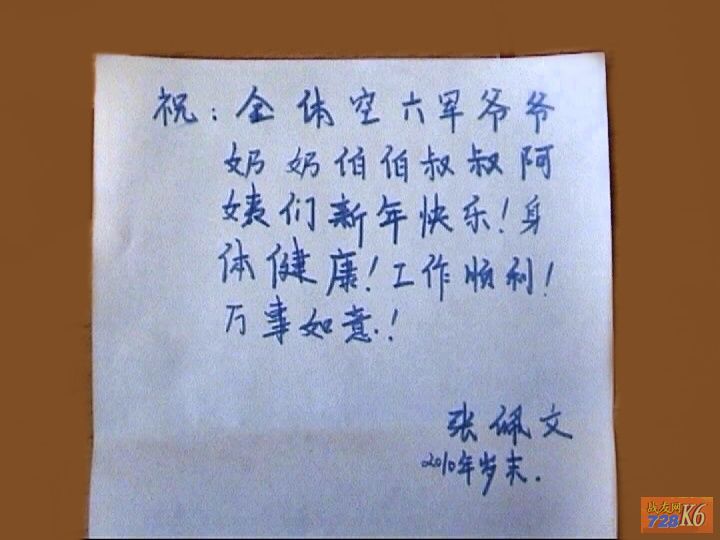 祝：全体空六军爷爷
奶奶伯伯叔叔阿
姨们新年快乐！身
体健康！工作顺利！
万事如意！
张佩文
2010年岁末.
战友网
728K6